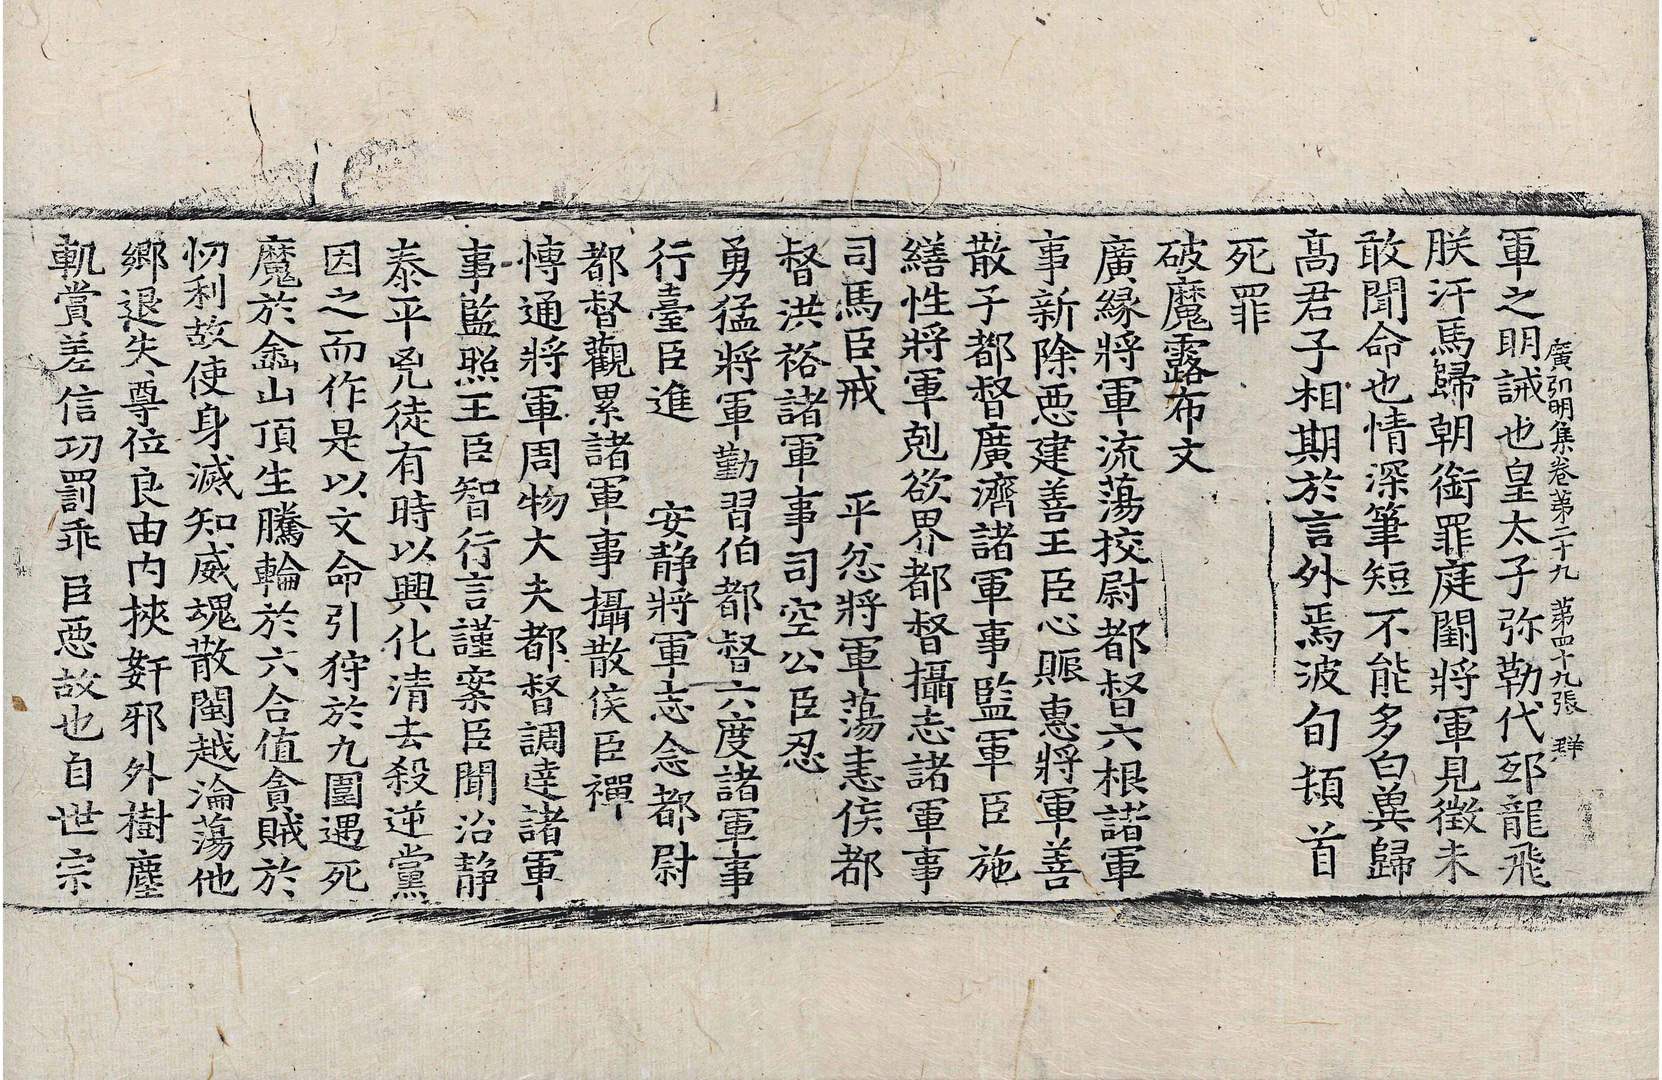 廣弘明集卷第二十九 第四十九張 群
軍之明誡也皇太子弥勒代邳龍飛
朕汗馬歸朝銜罪庭闈將軍見徵未
敢聞命也情深筆短不能多白兾歸
髙君子相期於言外焉波旬頓首
死罪
破魔露布文
廣緣將軍流蕩挍尉都督六根諸軍
事新除惡建善王臣心賑惠將軍善
散子都督廣濟諸軍事監軍臣施
繕性將軍剋欲界都督攝志諸軍事
司馬臣戒 平忿將軍蕩恚侯都
督洪裕諸軍事司空公臣忍
勇猛將軍勤習伯都督六度諸軍事
行臺臣進 安靜將軍志念都尉
都督觀累諸軍事攝散侯臣禪
博通將軍周物大夫都督調達諸軍
事監照王臣智行言謹案臣聞治静
泰平兇徒有時以興化清去殺逆黨
因之而作是以文命引狩於九圍遇死
魔於㑹山頂生騰輪於六合值貪賊於
忉利故使身滅知威魂散閫越淪蕩他
鄉退失尊位良由內挾姧邪外樹塵
軌賞差信功罰乖臣惡故也自世宗